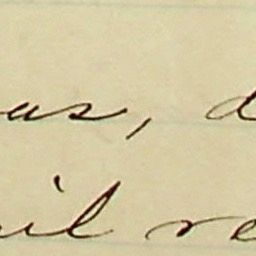 as, d
il re